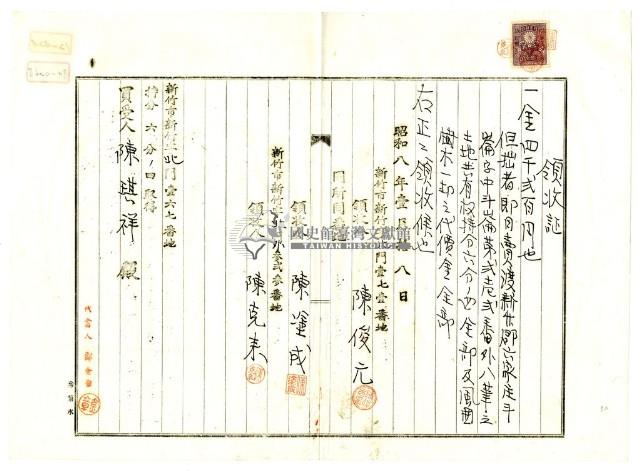 領收証
一金四千貳百円也
但拙者即日賣渡新竹郡六家庄斗
崙字中斗崙第貳壱貳番外八筆之
土地共有权持分六分ノ四全部及風囲
樹木一切之代價金全部
右正ニ領收候也
昭和八年壹月 八日
新竹市新竹 門壹七壹番地
領收人 陳俊元
同所同番地
領收人 陳運成
新竹市新竹 外参貳参番地
領收人 陳克来
新竹市新竹 北門壹六七番地
持分六分ノ四取得
買受人 陳琪祥 殿
代書人
國史館臺灣文獻館
TAIWAN HISTORICA